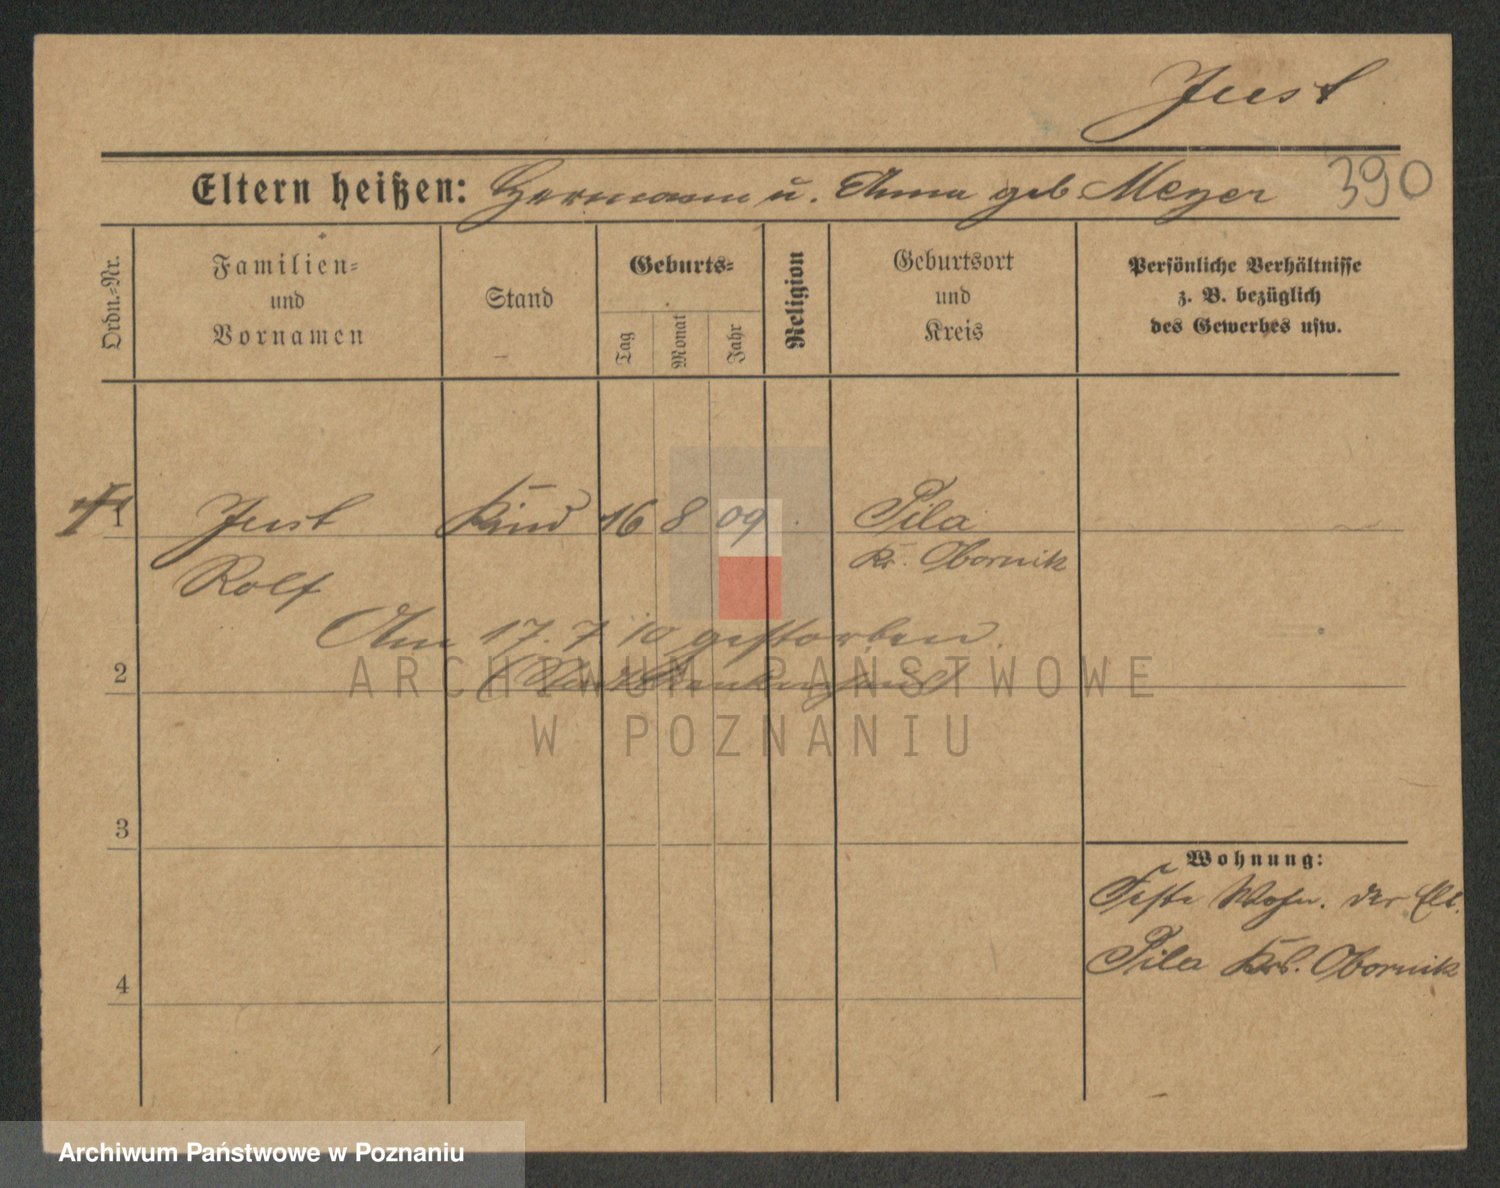 Just
390
Eltern heißen: Hermann u. Anna geb Meyer
Ordn.-Nr.
Familien- und Vornamen
Stand
Geburts-
Tag
Monat
Jahr
Religion
Geburtsort und Kreis
Persönliche Verhältnisse
z. B. bezüglich
des Gewerbes usw.
1 Just Kind 16 8 09 Pila
Rolf Kr. Obornik
Am 17. 7. 10 gestorben.
2
ARCHIWUM PAŃSTWOWE
W POZNANIU
3
Wohnung:
Feste Wohn. der Elt.
Pila Krs. Obornik
4
Archiwum Państwowe w Poznaniu